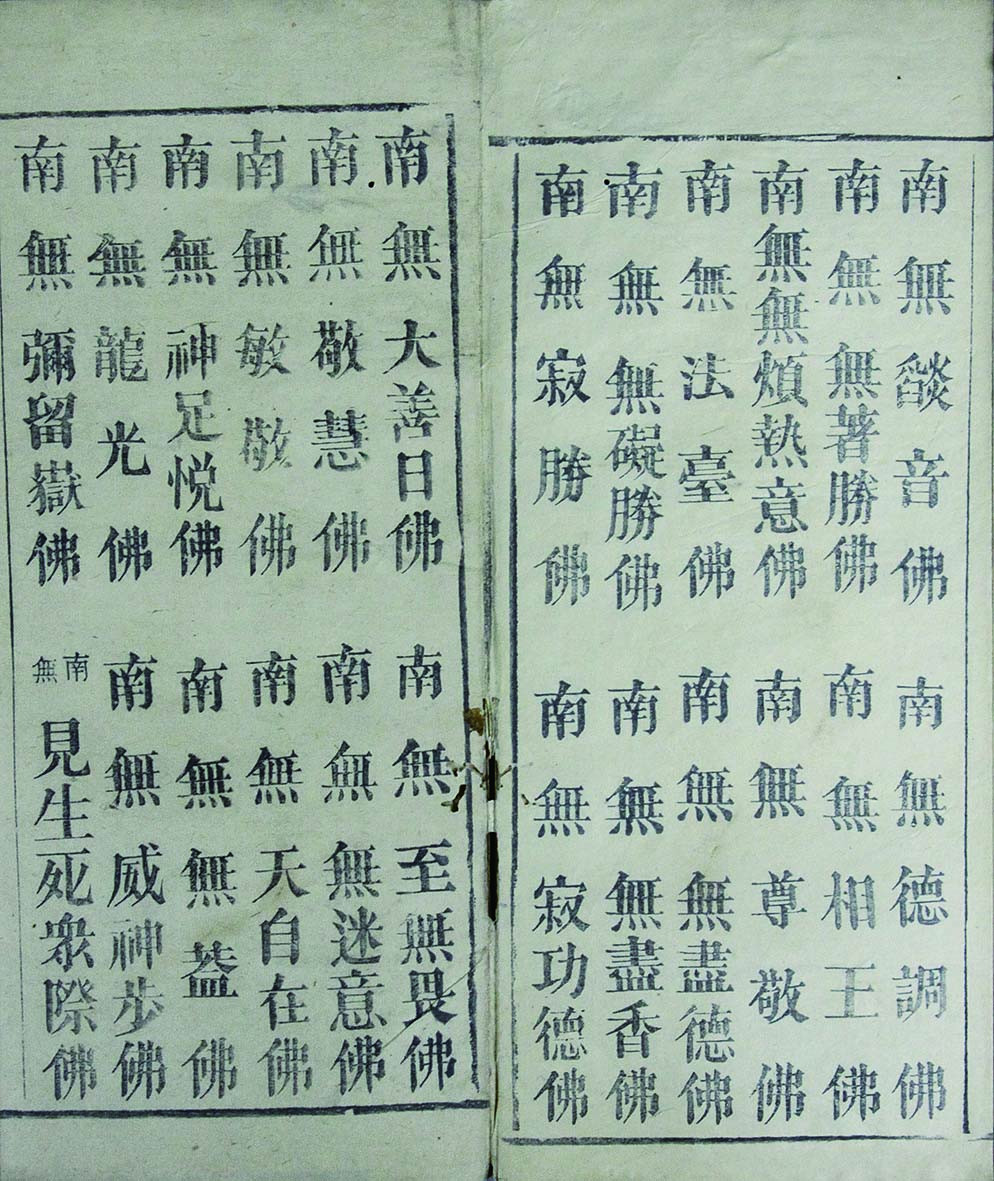 南無燄音佛　南無德調佛
南無無著勝佛　南無相王佛
南無無煩熱意佛　南無尊敬佛
南無法臺佛　南無無盡德佛
南無無礙勝佛　南無無盡香佛
南無寂勝佛　南無寂功德佛
南無大善日佛　南無至無畏佛
南無敬慧佛　南無無迷意佛
南無敏敬佛　南無天自在佛
南無神足悅佛　南無無蓋佛
南無龍光佛　南無威神步佛
南無彌留嶽佛　南無見生死衆際佛